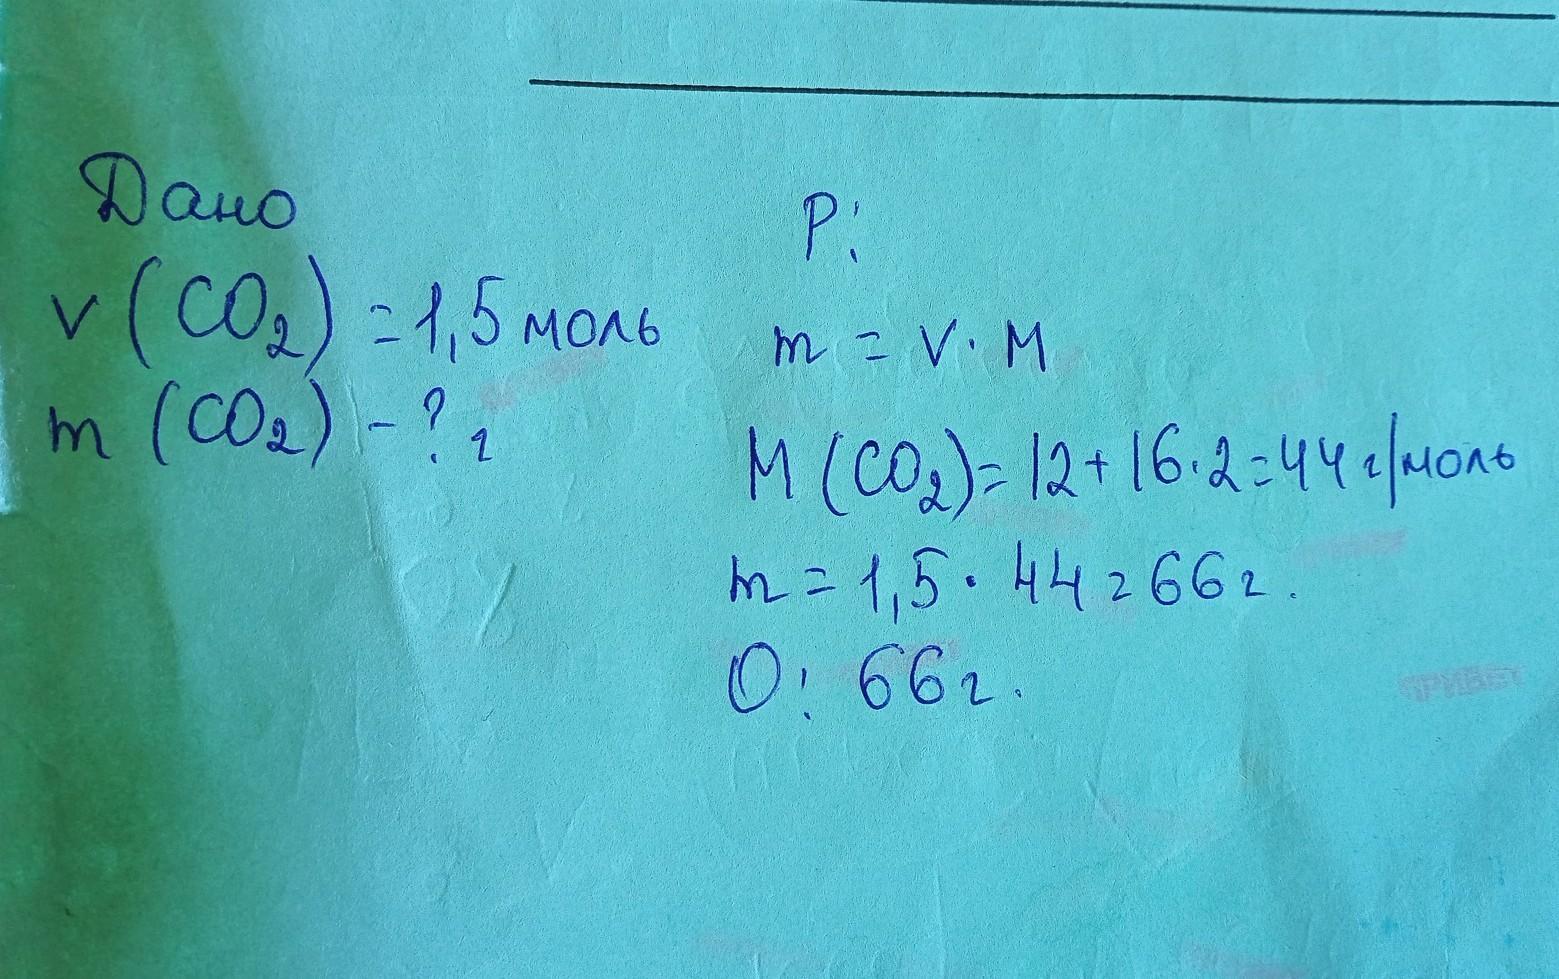 Дано
ν(CO₂) = 1,5 моль
m (CO₂) - ? г
Р:
m = ν · M
M (CO₂) = 12 + 16 · 2 = 44 г/моль
m = 1,5 · 44 = 66 г.
О: 66 г.
ПРИВЕТ